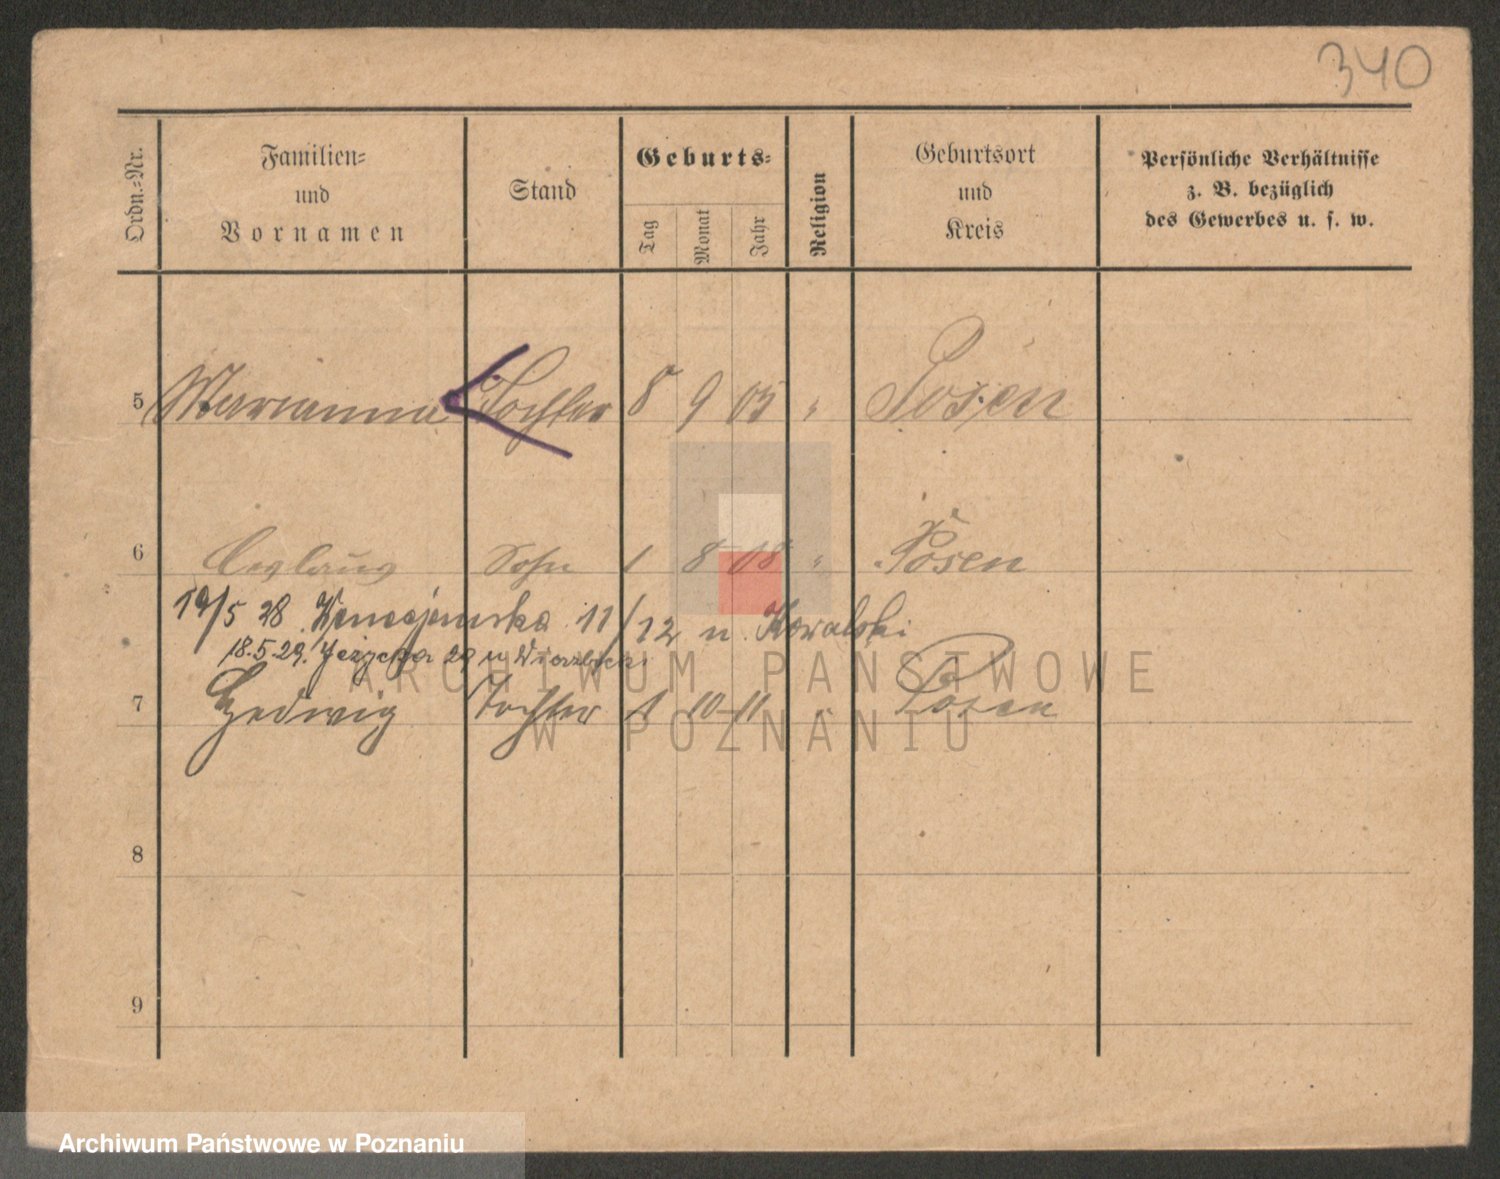 340
Ordn.-Nr.
Familien-
und
Vornamen
Stand
Geburts-
Tag
Monat
Jahr
Religion
Geburtsort
und
Kreis
Persönliche Verhältnisse
z. B. bezüglich
des Gewerbes u. s. w.
5 Marianna Tochter 8 9 05 " Posen
6 Sohn 1 8 08 " Posen
19/5 28. 11/12 u. Kowalski
18.5.29. 29 u
7 Hedwig Tochter 1 10 11 " Posen
8
9
ARCHIWUM PAŃSTWOWE
W POZNANIU
Archiwum Państwowe w Poznaniu